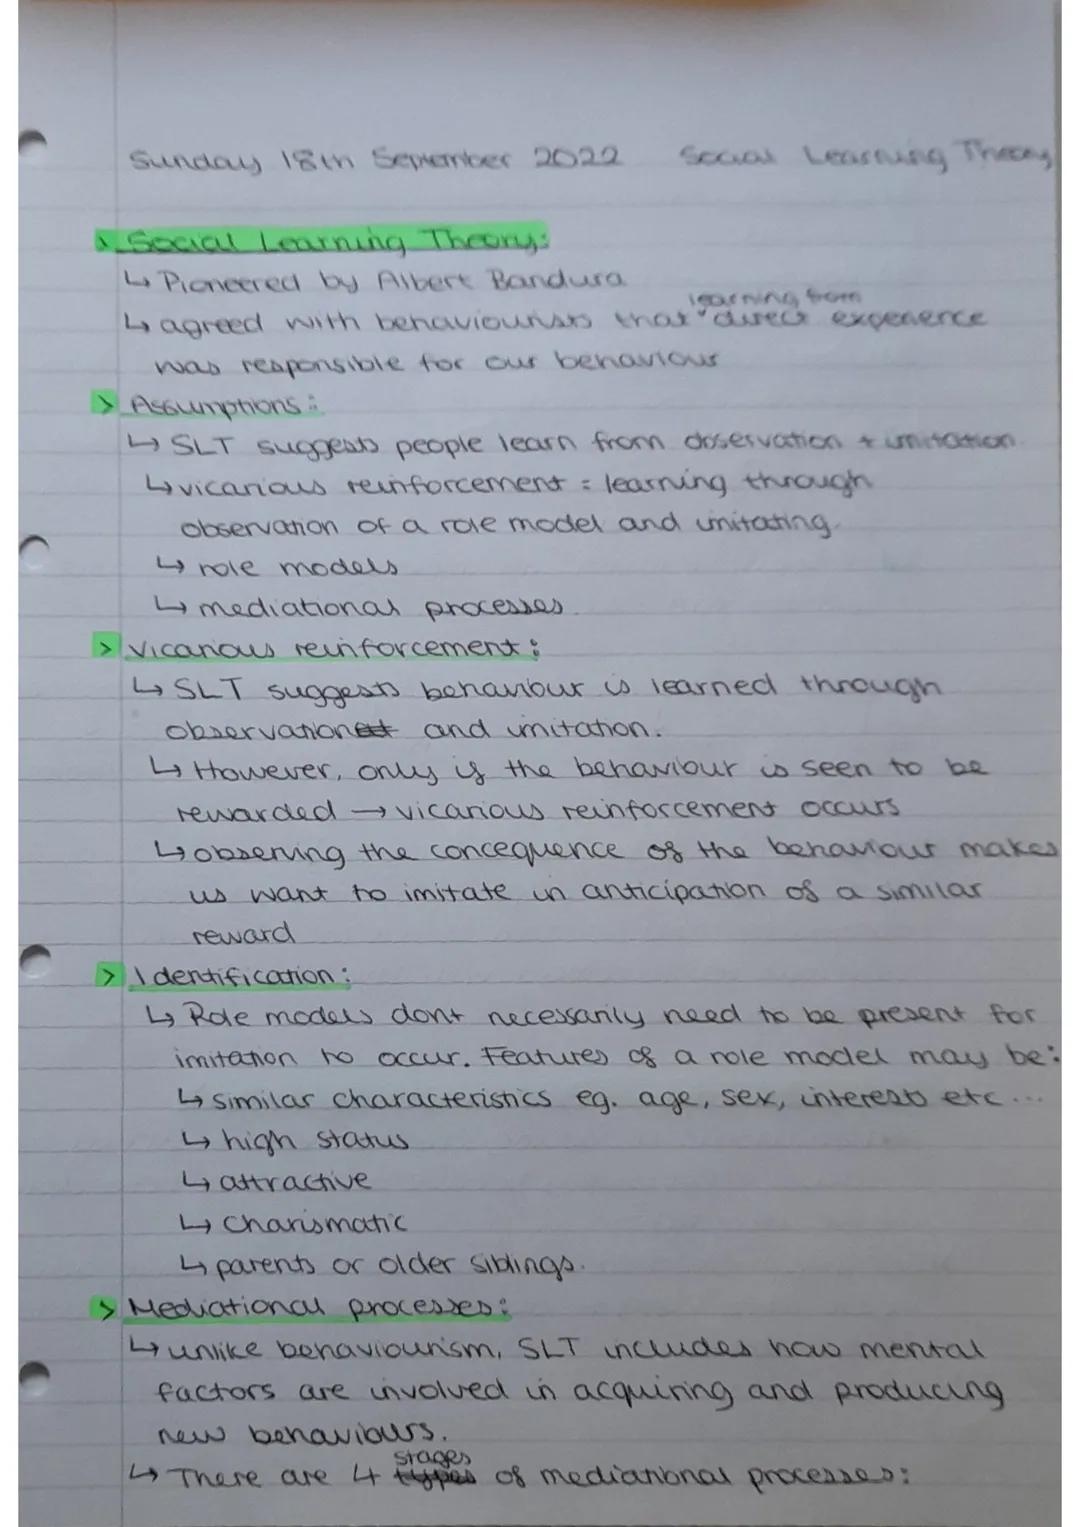 Sunday 18th September 2022 Social Learning Theory
> Social Learning Theory:
↳ Pioneered by Albert Bandura
learning from
↳ agreed with behaviourists that direct experience
was responsible for our behaviour
> Assumptions:
↳ SLT suggests people learn from observation + imitation.
↳ vicarious reinforcement = learning through
observation of a role model and imitating.
↳ role models
↳ mediational processes.
> Vicarious reinforcement:
↳ SLT suggests behaviour is learned through
observation and imitation.
↳ However, only if the behaviour is seen to be
rewarded → vicarious reinforcement occurs
↳ observing the concequence of the behaviour makes
us want to imitate in anticipation of a similar
reward
> Identification:
↳ Role models dont necessarily need to be present for
imitation to occur. Features of a role model may be:
↳ similar characteristics eg. age, sex, interests etc...
↳ high status
↳ attractive
↳ charismatic
↳ parents or older siblings.
> Mediational processes:
↳ unlike behaviourism, SLT includes how mental
factors are involved in acquiring and producing
new behaviours.
stages
↳ There are 4 types of mediational processes: